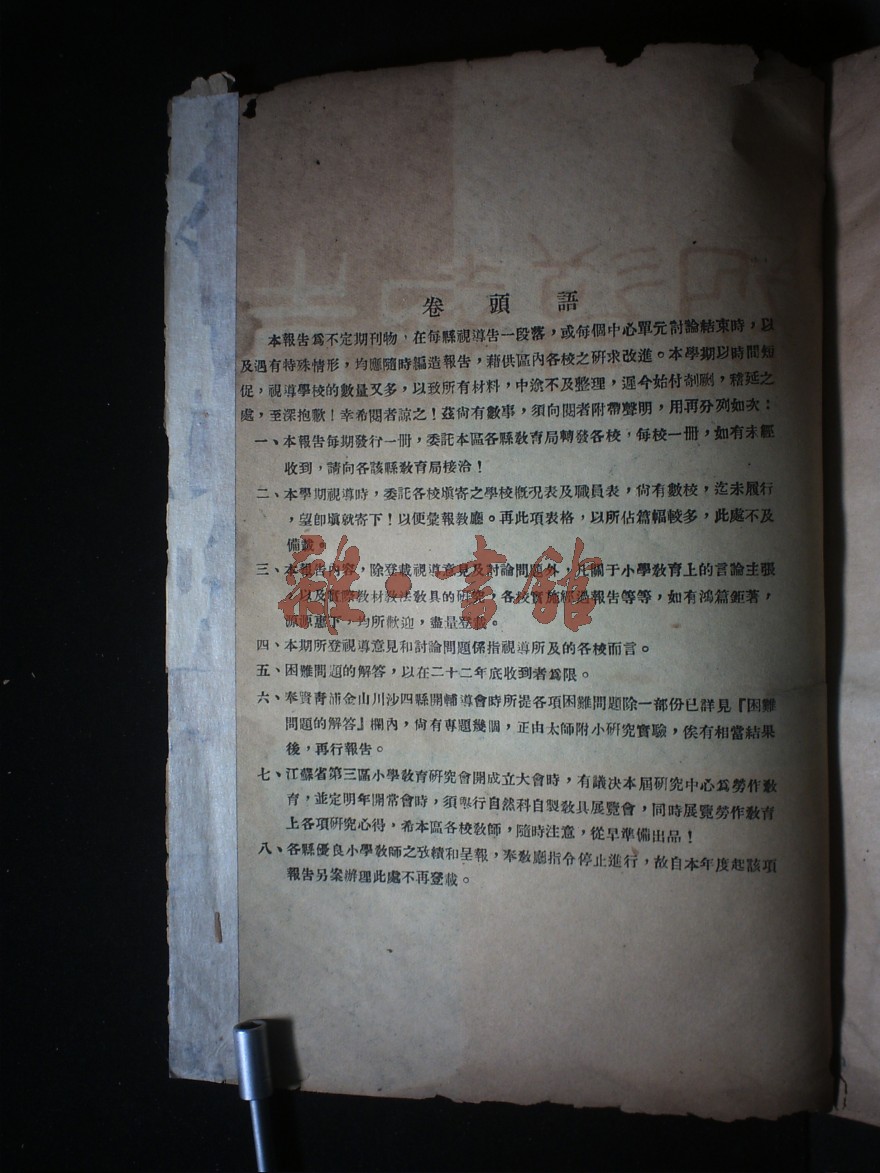 卷頭語
本報告爲不定期刊物，在每縣視導告一段落，或每個中心單元討論結束時，以
及遇有特殊情形，均應隨時編造報告，藉供區內各校之硏求改進。本學期以時間短
促，視導學校的數量又多，以致所有材料，中途不及整理，遲今始付剞劂，稽延之
處，至深抱歉！幸希閱者諒之！茲尙有數事，須向閱者附帶聲明，用再分列如次：
一、本報告每期發行一冊，委託本區各縣敎育局轉發各校，每校一冊，如有未經
收到，請向各該縣敎育局接洽！
二、本學期視導時，委託各校塡寄之學校槪况表及職員表，尙有數校，迄未履行
，望卽塡就寄下！以便彙報敎廳。再此項表格，以所佔篇幅較多，此處不及
備載。
三、本報告內容，除登載視導意見及討論問題外，凡關于小學敎育上的言論主張
，以及實際敎材敎法敎具的硏究，各校實施經過報告等等，如有鴻篇鉅著，
源源惠下，均所歡迎，盡量登載。
四、本期所登視導意見和討論問題係指視導所及的各校而言。
五、困難問題的解答，以在二十二年底收到者爲限。
六、奉賢靑浦金山川沙四縣開輔導會時所提各項困難問題除一部份已詳見『困難
問題的解答』欄內，尙有專題幾個，正由太師附小硏究實驗，俟有相當結果
後，再行報告。
七、江蘇省第三區小學敎育硏究會開成立大會時，有議決本屆硏究中心爲勞作敎
育，並定明年開常會時，須舉行自然科自製敎具展覽會，同時展覽勞作敎育
上各項硏究心得，希本區各校敎師，隨時注意，從早準備出品！
八、各縣優良小學敎師之攷績和呈報，奉敎廳指令停止進行，故自本年度起該項
報告另案辦理此處不再登載。
雜·書館